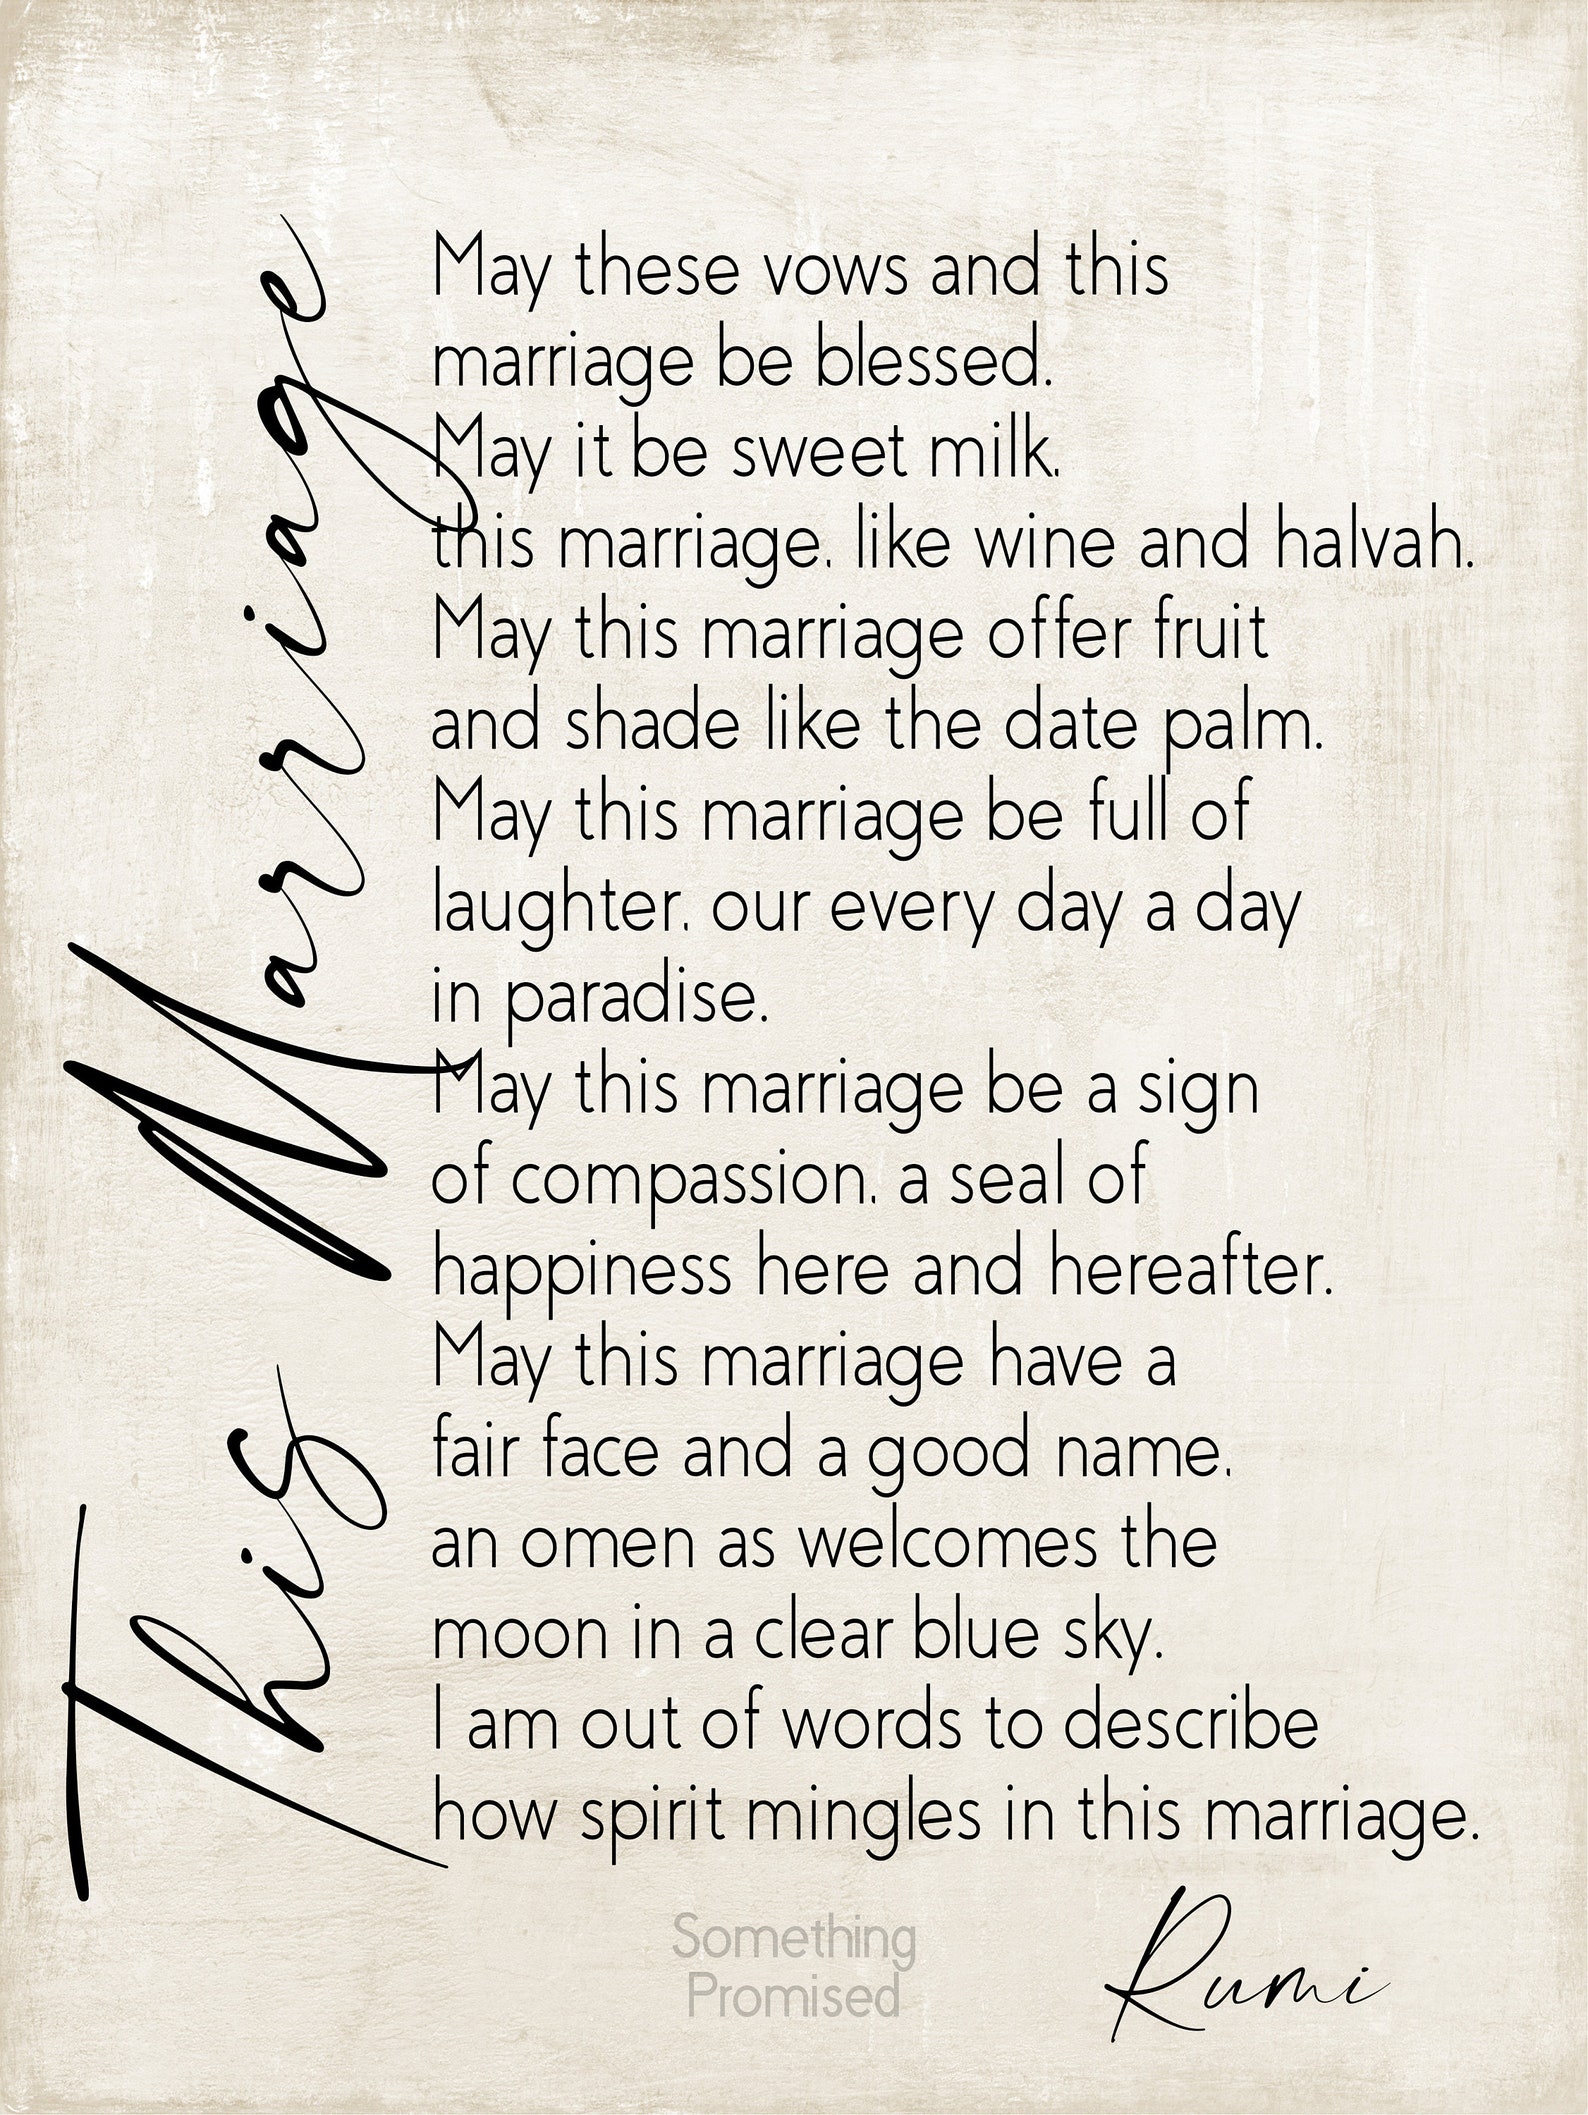 This Marriage
May these vows and this
marriage be blessed.
May it be sweet milk,
this marriage, like wine and halvah.
May this marriage offer fruit
and shade like the date palm.
May this marriage be full of
laughter, our every day a day
in paradise.
May this marriage be a sign
of compassion, a seal of
happiness here and hereafter.
May this marriage have a
fair face and a good name,
an omen as welcomes the
moon in a clear blue sky.
I am out of words to describe
how spirit mingles in this marriage.
Rumi
Something
Promised